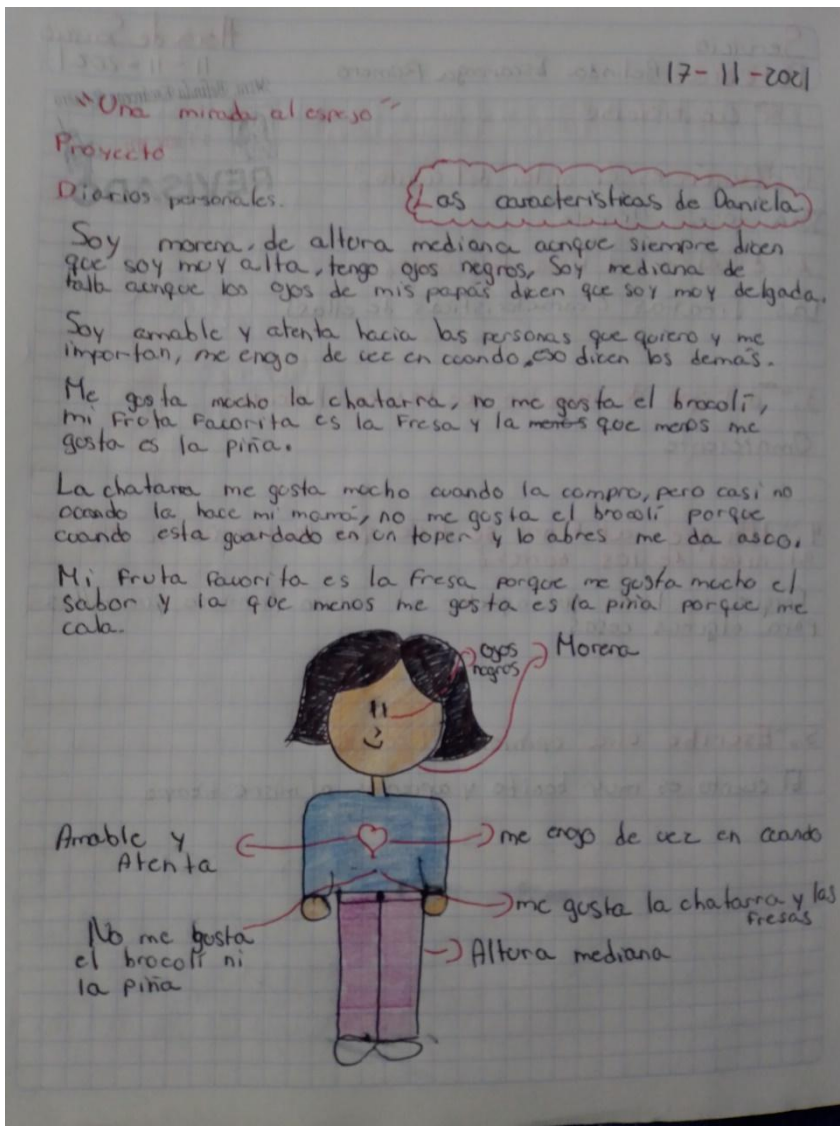 17-11-2021
"Una mirada al espejo"
Proyecto
Diarios personales.
Las características de Daniela.
Soy morena, de altura mediana aunque siempre dicen
que soy muy alta, tengo ojos negros, Soy mediana de
talla aunque los ojos de mis papás dicen que soy muy delgada.
Soy amable y atenta hacia las personas que quiero y me
importan, me enojo de vez en cuando, eso dicen los demás.
Me gusta mucho la chatarra, no me gusta el brocolí,
mi fruta favorita es la fresa y la menos que menos me
gusta es la piña.
La chatarra me gusta mucho cuando la compro, pero casi no
cuando la hace mi mamá, no me gusta el brocolí porque
cuando esta guardado en un toper y lo abres me da asco.
Mi fruta favorita es la fresa porque me gusta mucho el
sabor y la que menos me gusta es la piña porque me
cala.
ojos
negros
Morena
Amable y
Atenta
me enojo de vez en cuando
No me gusta
el brocolí ni
la piña
me gusta la chatarra y las
fresas
Altura mediana